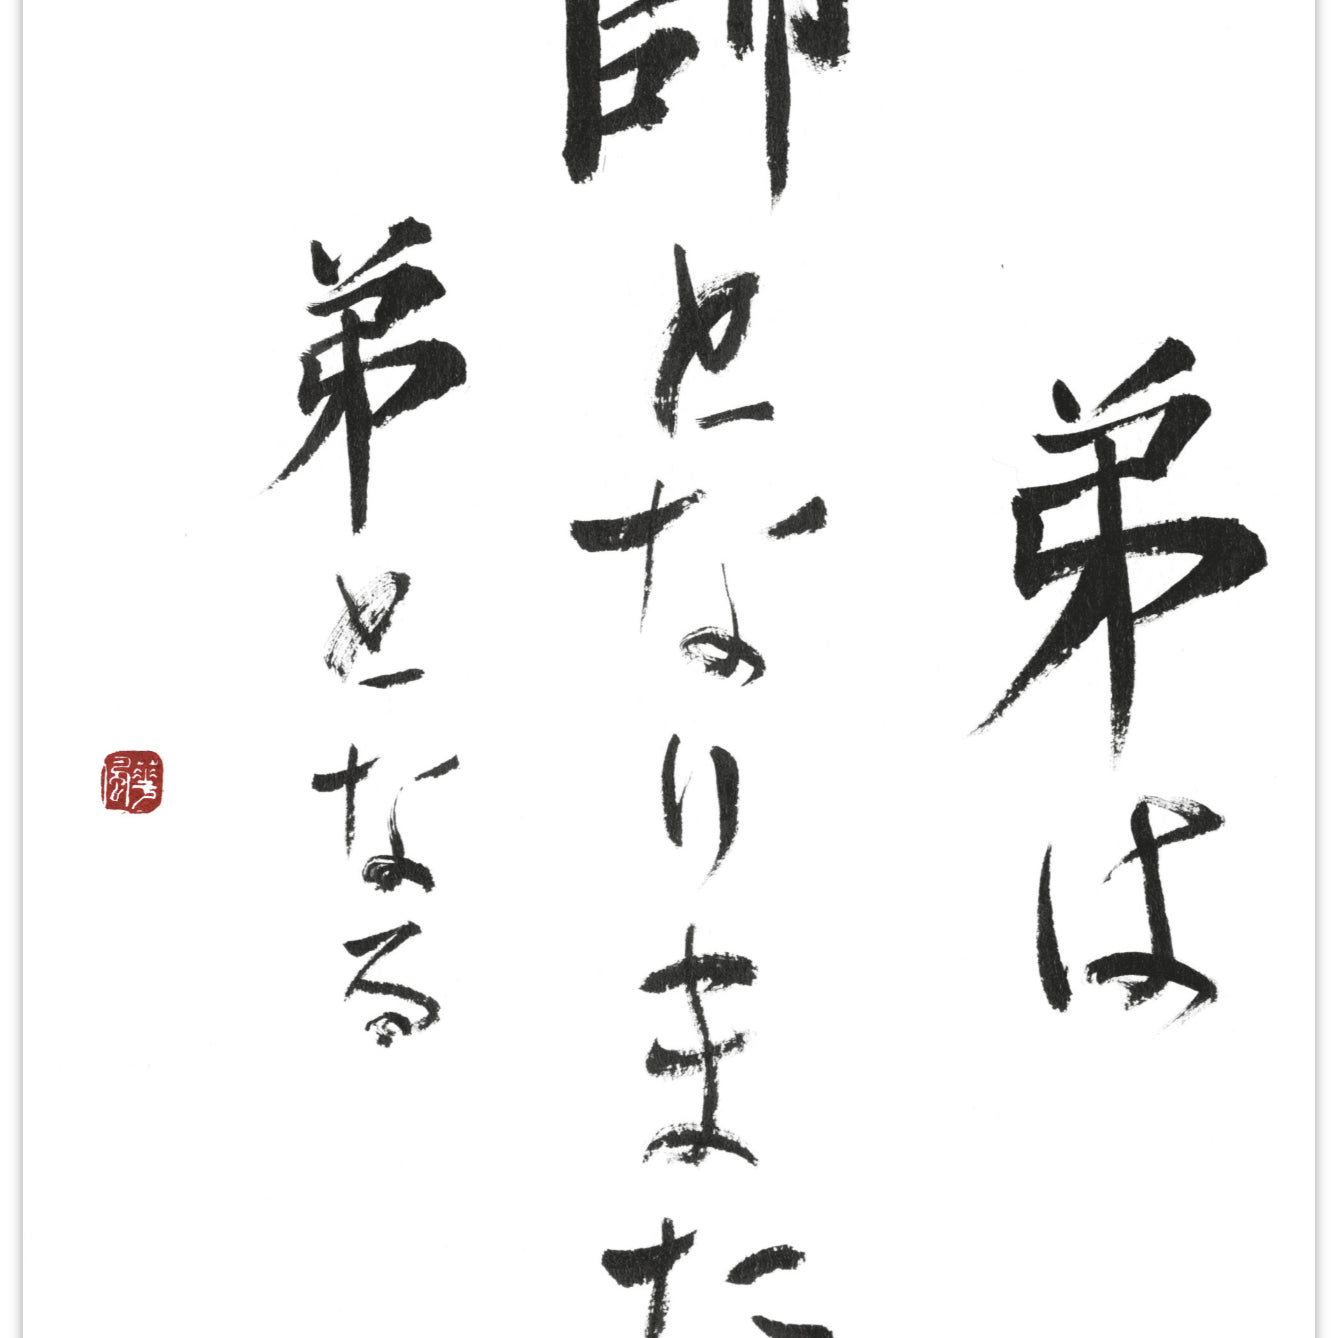 弟は
師となりまた
弟となる